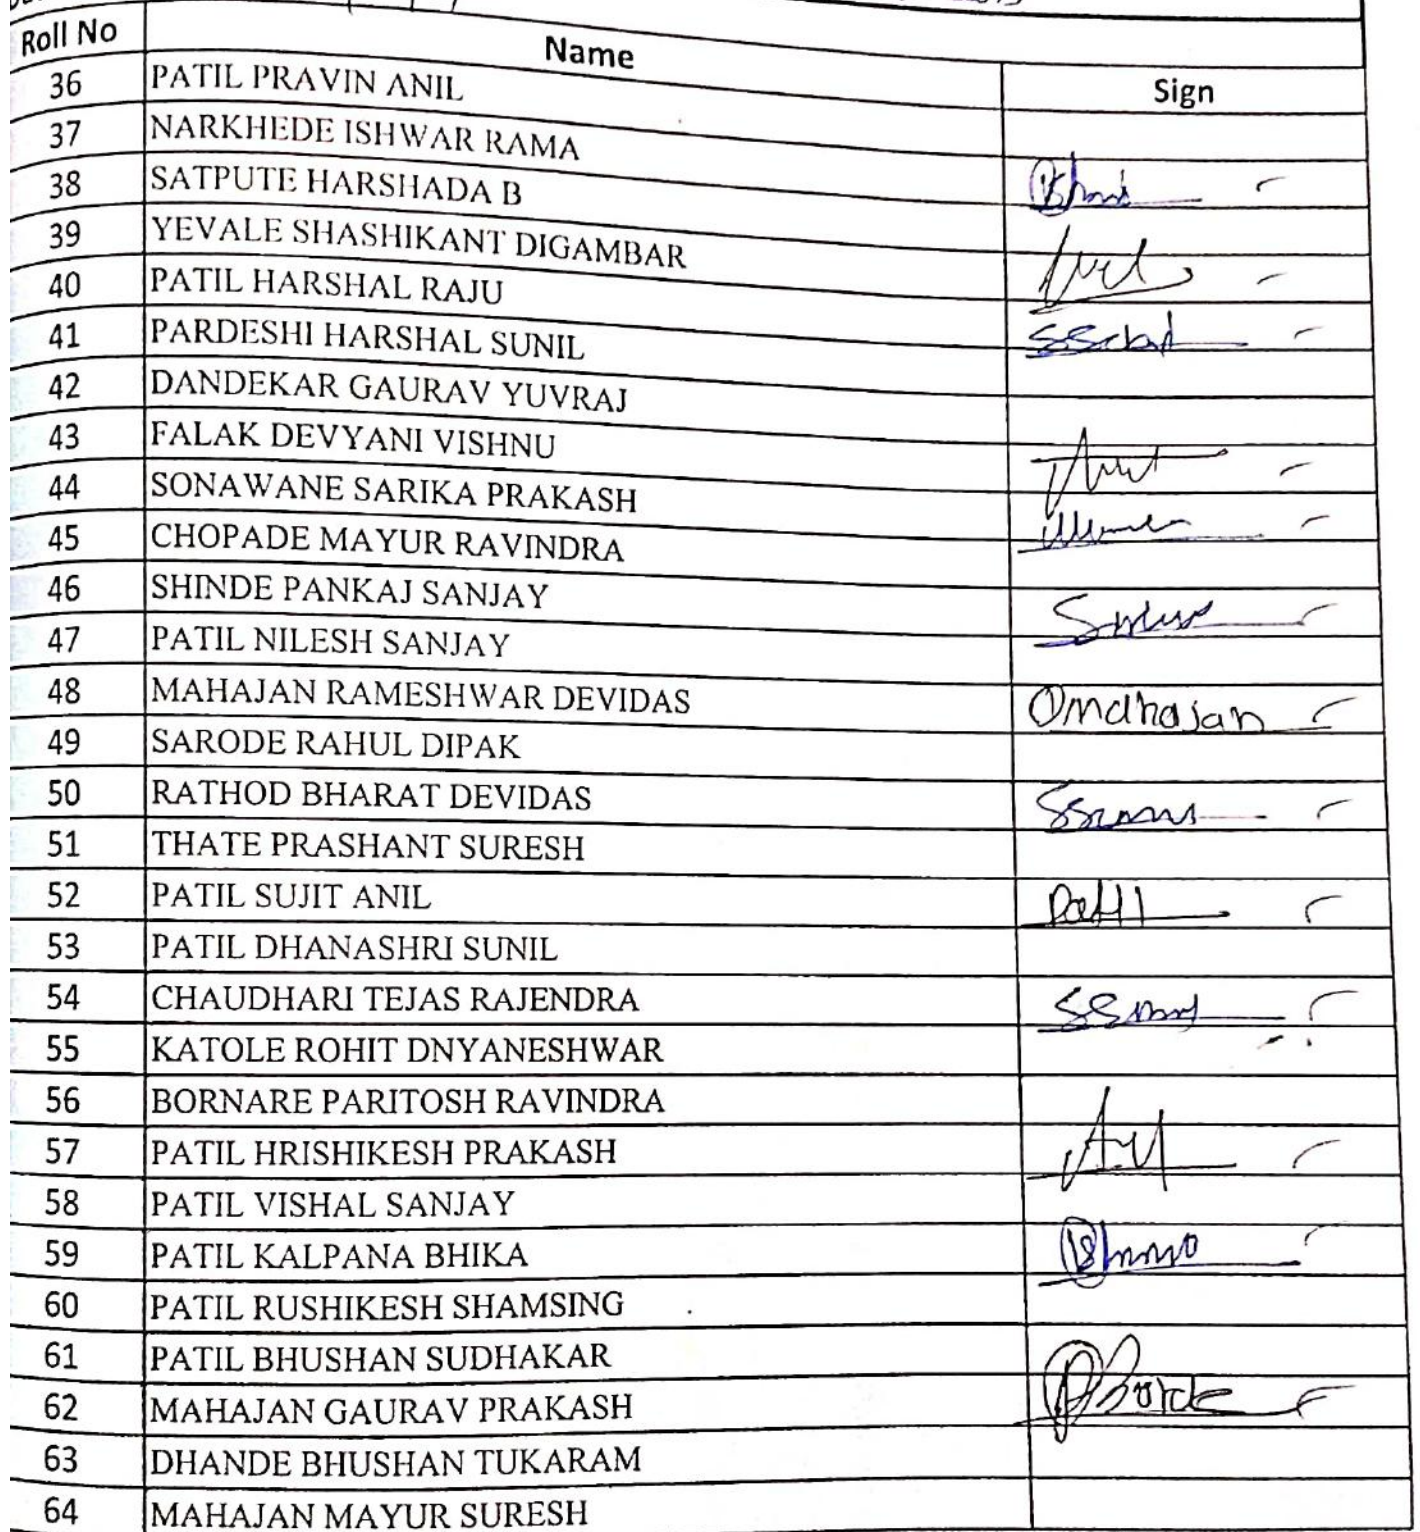 Roll No Name Sign
36 PATIL PRAVIN ANIL
37 NARKHEDE ISHWAR RAMA
38 SATPUTE HARSHADA B
39 YEVALE SHASHIKANT DIGAMBAR
40 PATIL HARSHAL RAJU
41 PARDESHI HARSHAL SUNIL
42 DANDEKAR GAURAV YUVRAJ
43 FALAK DEVYANI VISHNU
44 SONAWANE SARIKA PRAKASH
45 CHOPADE MAYUR RAVINDRA
46 SHINDE PANKAJ SANJAY
47 PATIL NILESH SANJAY
48 MAHAJAN RAMESHWAR DEVIDAS
49 SARODE RAHUL DIPAK
50 RATHOD BHARAT DEVIDAS
51 THATE PRASHANT SURESH
52 PATIL SUJIT ANIL
53 PATIL DHANASHRI SUNIL
54 CHAUDHARI TEJAS RAJENDRA
55 KATOLE ROHIT DNYANESHWAR
56 BORNARE PARITOSH RAVINDRA
57 PATIL HRISHIKESH PRAKASH
58 PATIL VISHAL SANJAY
59 PATIL KALPANA BHIKA
60 PATIL RUSHIKESH SHAMSING
61 PATIL BHUSHAN SUDHAKAR
62 MAHAJAN GAURAV PRAKASH
63 DHANDE BHUSHAN TUKARAM
64 MAHAJAN MAYUR SURESH